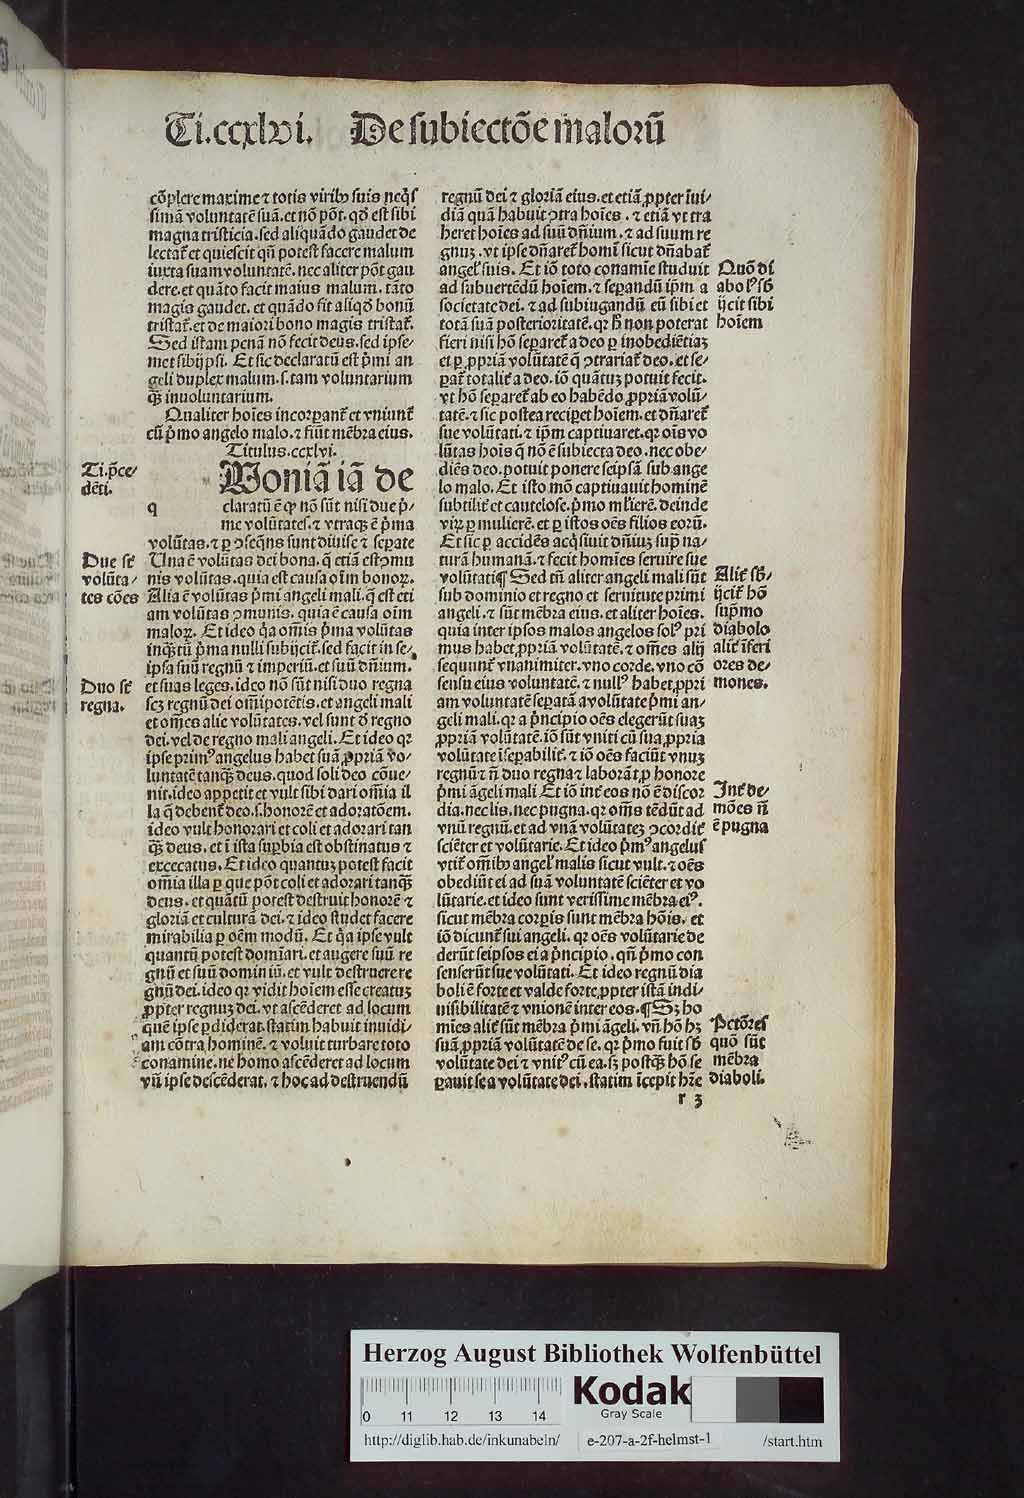 Ti.ccxlvi. De subiectõe malorũ
cõplere maxime ⁊ totis viribꝰ suis neq̃s
simã voluntatẽ suã. et nõ põt. qđ est sibi
magna tristicia. sed aliquãdo gaudet de
lectat̃ et quiescit qñ potest facere malum
iuxta suam voluntatẽ. nec aliter põt gau
dere. et quãto facit maius malum. tãto
magis gaudet. et quãdo fit aliqđ bonũ
tristat̃. et de maiori bono magis tristat̃.
Sed istam penã nõ fecit deus. sed ipse⸗
met sibijpsi. Et sic declaratũ est p̃mi an
geli duplex malum. s. tam voluntarium
q̃ꝫ inuoluntarium.
Qualiter hoies incorpant̃ et vniunt̃
cũ p̃mo angelo malo. ⁊ fiũt mẽbra eius.
Titulus.ccxlvi.
Ti.p̃ce⸗
dẽti.
q
Woniã iã de
claratũ ẽ ꝙ nõ sũt nisi due p̃⸗
me volũtates. ⁊ vtraqꝫ ẽ p̃ma
volũtas. ⁊ ꝑ ꝯseq̃ns sunt diuise ⁊ seꝑate
Due st̃
volũta⸗
tes cões
Una ẽ volũtas dei bona. q̃ etiã est ꝯmu
nis volũtas. quia est causa oĩm bonoꝝ.
Alia ẽ volũtas p̃mi angeli mali. q̃ est eti
am volũtas ꝯmunis. quia ẽ causa oĩm
maloꝝ. Et ideo q̃a om̃is p̃ma voluntas
inq̃ꝫtũ p̃ma nulli subijcit̃. sed facit in se⸗
ipsa suũ regnũ ⁊ imperiũ. et suũ dñium.
Duo st̃
regna.
et suas leges. ideo nõ sũt nisi duo regna
scꝫ regnũ dei om̃ipotẽtis. et angeli mali
et om̃es alie volũtates. vel sunt đ regno
dei. vel de regno mali angeli. Et ideo qꝛ
ipse primꝰ angelus habet suã ꝓpriã vo⸗
luntatẽ tanq̃ꝫ deus. quod soli deo cõue⸗
nit. ideo appetit et vult sibi dari om̃ia il
la q̃ debent̃ deo. s. honorẽ et adoratõem.
ideo vult honorari et coli et adorari tan
q̃ꝫ deus. et ĩ ista suꝑbia est obstinatus ⁊
excecatus. Et ideo quantuꝫ potest facit
om̃ia illa ꝑ que põt coli et adorari tanq̃ꝫ
deus. et quãtũ potest destruit honorẽ ⁊
gloriã et culturã dei. ⁊ ideo studet facere
mirabilia ꝑ oẽm modũ. Et q̃a ipse vult
quantũ potest dom̃iari. et augere suũ re
gnũ et suũ dominiũ. et vult destruere re
gnũ dei. ideo qꝛ vidit hoĩem esse creatuꝫ
ꝓpter regnuꝫ dei. vt ascẽderet ad locum
quẽ ipse ꝑdiderat. statim habuit inuidi⸗
am cõtra hominẽ. ⁊ voluit turbare toto
conamine. ne homo ascẽderet ad locum
vñ ipse descẽderat. ⁊ hoc ad destruendũ
regnũ dei ⁊ gloriã eius. et etiã ꝓpter ĩui⸗
diã quã habuit ꝯtra hoĩes. ⁊ etiã vt tra
heret hoĩes ad suũ dñium. ⁊ ad suum re
gnuꝫ. vt ipse dñaret̃ homĩ sicut dñabat̃
angel̃ suis. Et iõ toto conamĩe studuit
ad subuertẽdũ hoĩem. ⁊ seꝑandũ ip̃m a
societate dei. ⁊ ad subiugandũ eũ sibi et
totã suã posterioritatẽ. qꝛ ꝗ non poterat
fieri nisi hõ seꝑaret̃ a deo ꝑ inobediẽtiaꝫ
et ꝑ ꝓpriã volũtatẽ q̃ ꝯtrariat̃ deo. et se⸗
ꝑat̃ totalit̃ a deo. iõ quãtuꝫ potuit fecit.
vt hõ seꝑaret̃ ab eo habẽdo ꝓpriã volũ⸗
tatẽ. ⁊ sic postea reciꝑet hoĩem. et dñaret̃
sue volũtati. ⁊ ip̃m captiuaret. qꝛ oĩs vo
lũtas hoĩs q̃ nõ ẽ subiecta deo. nec obe⸗
diẽs deo. potuit ponere seipsã sub ange
lo malo. Et isto mõ captiuauit hominẽ
subtilit̃ et cautelose. p̃mo ml̃ierẽ. deinde
viꝝ ꝑ mulierẽ. et ꝑ istos oẽs filios eorũ.
Et sic ꝑ accidẽs acq̃siuit dñiuꝫ sup̃ na⸗
turã humanã. ⁊ fecit homĩes seruire sue
volũtati ¶ Sed tñ aliter angeli mali sũt
sub dominio et regno et seruitute primi
angeli. ⁊ sũt mẽbra eius. et aliter hoĩes.
quia inter ipsos malos angelos solꝰ pri
mus habet ꝓpriã volũtatẽ. ⁊ om̃es alij
sequunt̃ vnanimiter. vno corde. vno cõ
sensu eius voluntatẽ. ⁊ nullꝰ habet ꝓpri
am voluntatẽ seꝑatã a volũtate p̃mi an⸗
geli mali. qꝛ a p̃ncipio oẽs elegerũt suaꝫ
ꝓpriã volũtatẽ. iõ sũt vniti cũ sua ꝓpria
volũtate ĩseꝑabilit̃. ⁊ iõ oẽs faciũt vnuꝫ
regnũ ⁊ ñ duo regna ⁊ laborãt ꝓ honore
p̃mi ãgeli mali Et iõ int̃ eos nõ ẽ discor
dia. nec lis. nec pugna. qꝛ om̃s tẽdũt ad
vnũ regnũ. et ad vnã volũtateꝫ ꝯcordit̃
sciẽter et volũtarie. Et ideo p̃mꝰ angelus
vtit̃ om̃ibꝰ angel̃ malis sicut vult. ⁊ oẽs
obediũt ei ad suã voluntatẽ sciẽter et vo
lũtarie. et ideo sunt verissime mẽbra eiꝰ.
sicut mẽbra corꝑis sunt mẽbra hõis. et
iõ dicunt̃ sui angeli. qꝛ oẽs volũtarie de
derũt seipsos ei a p̃ncipio. qñ p̃mo con
senserũt sue volũtati. Et ideo regnũ dia
boli ẽ forte et valde forte ꝓpter istã indi⸗
uisibilitatẽ ⁊ vnionẽ inter eos. ¶ Sꝫ ho
mĩes alit̃ sũt mẽbra p̃mi ãgeli. vñ hõ hꝫ
suã ꝓpriã volũtatẽ de se. qꝛ p̃mo fuit sb̃
volũtate dei ⁊ vnitꝰ cũ ea. sꝫ postq̃ꝫ hõ se
ꝑauit se a volũtate dei. statim ĩcepit hr̃e
r 3
Quõ di
abolꝰ sb̃
ijcit sibi
hoĩem
Alit̃ sb̃⸗
ijcit̃ hõ
sup̃mo
diabolo
alit̃ ĩferi
ores de⸗
mones.
Int̃ de⸗
mões ñ
ẽ pugna
Pctõres
quõ sũt
mẽbra
diaboli.
Herzog August Bibliothek Wolfenbüttel
0 11 12 13 14
Kodak
Gray Scale
http://diglib.hab.de/inkunabeln/ e-207-a-2f-helmst-1 /start.htm